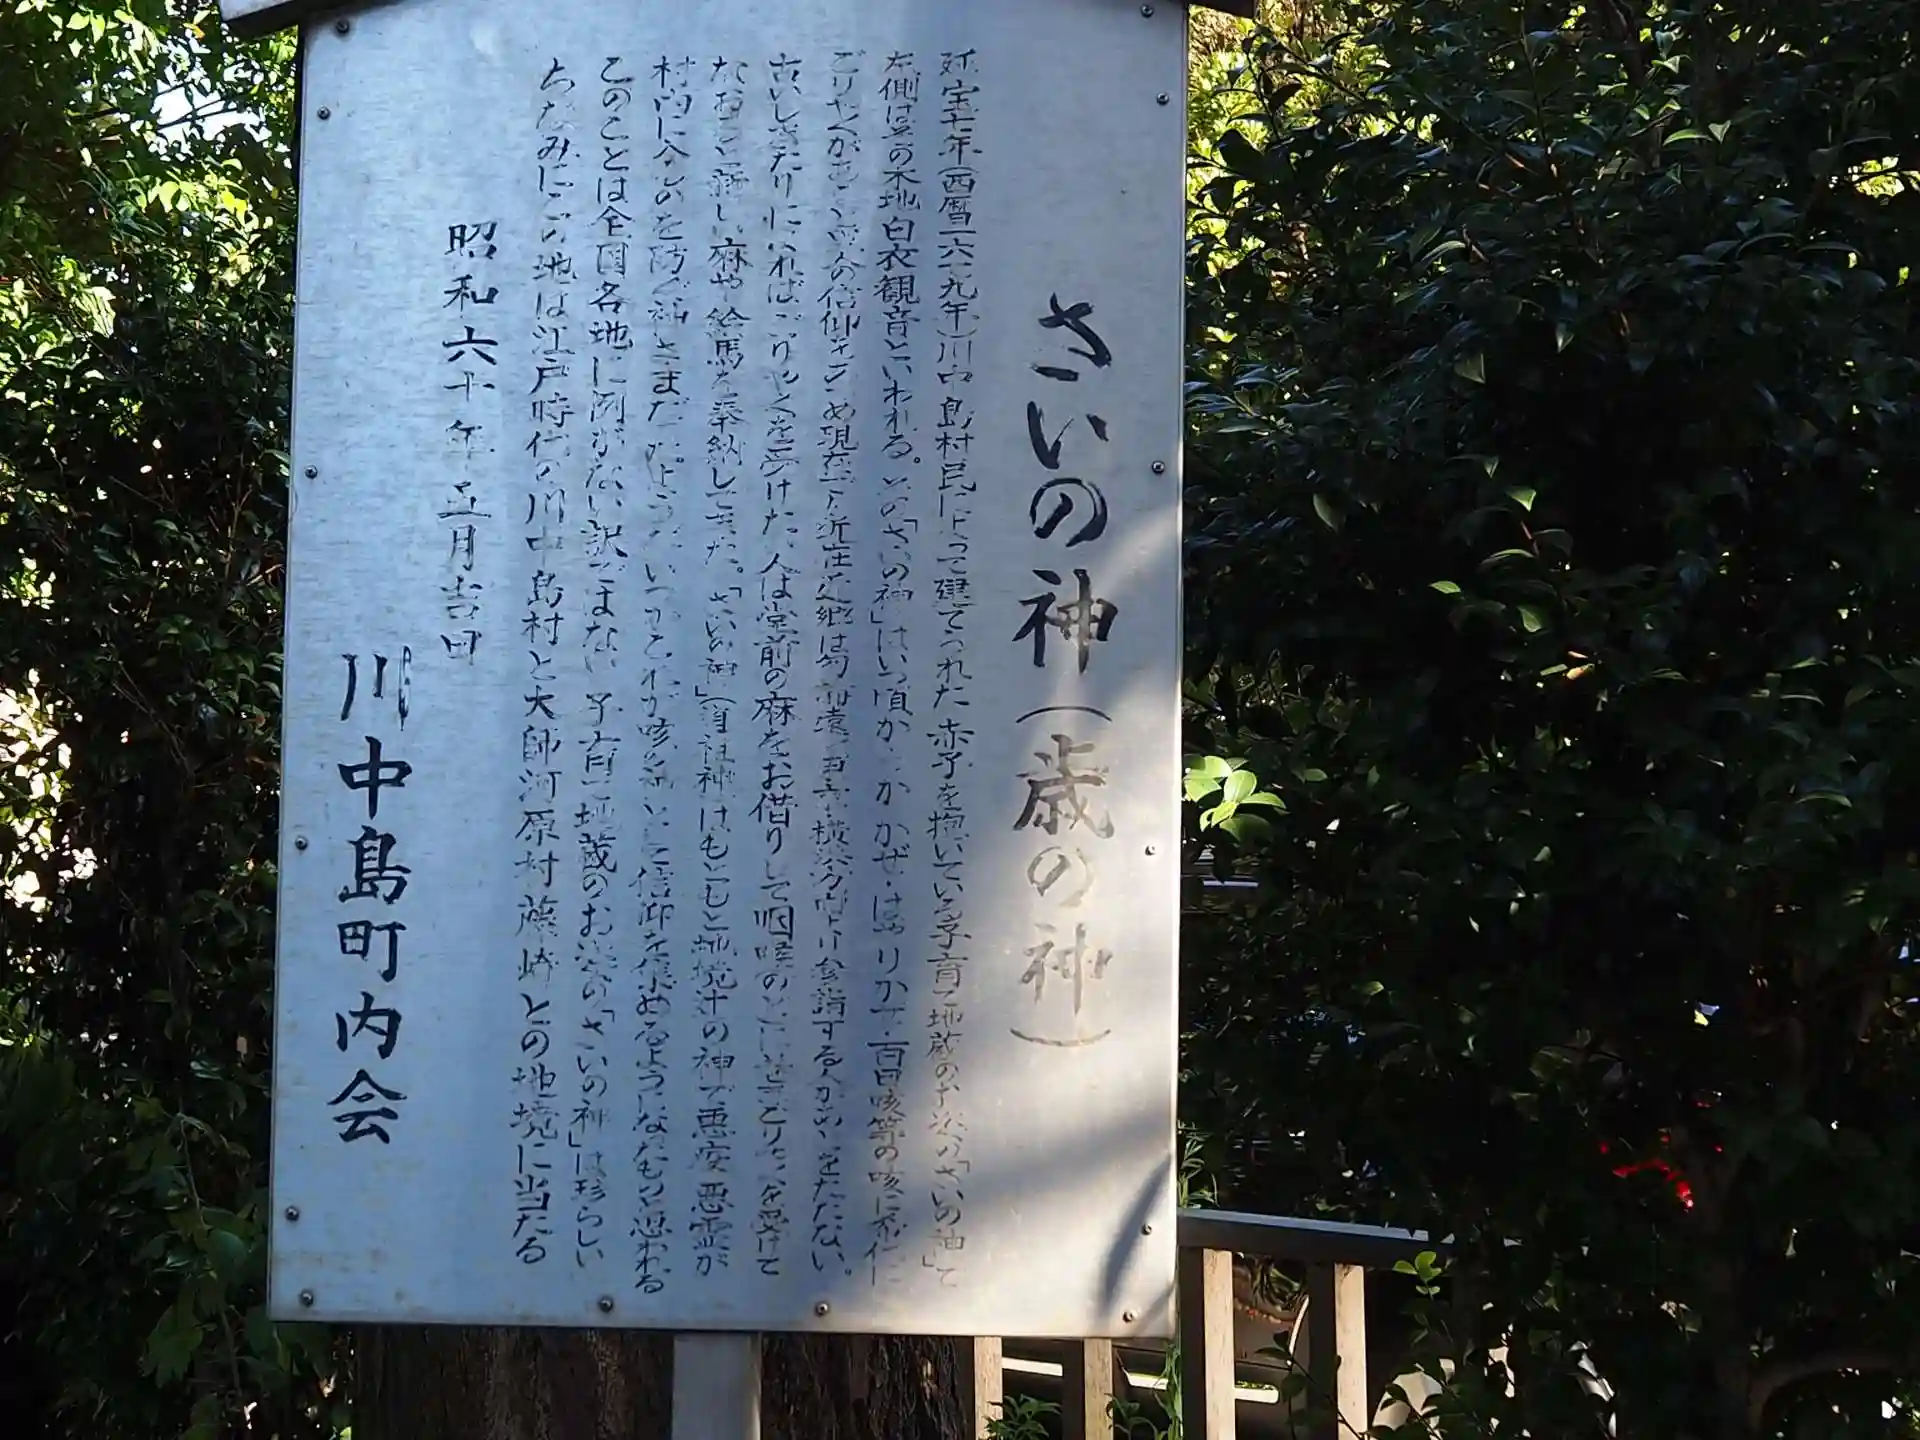 さいの神(歳の神)
延宝七年(西暦一六七九年)川中島村民によって建てられた赤子を抱いている子育て地蔵のお姿の「さいの神」で
左側は の本地白衣観音といわれる。この「さいの神」はいつ頃から かかぜ・はやりかぜ・百日咳等の咳に
ごりやくがあると の信仰をこめ現在でも近在近郷は勿論遠 横浜方面より参詣する人があとをたたない。
古いしきたりによればごりやくを受けたい人は堂前の麻をお借りして咽喉のど ごりやくを受けて
なおると新しい麻や絵馬を奉納してきた。「さいの神」(道祖神)はもともと地境辻の神で悪疫悪霊が
村内に入るのを防ぐ神さまだったようだ。いつかこれが咳の神として信仰を集めるようになったものと思われる
このことは全国各地に例がない訳ではないが子育て地蔵のお姿の「さいの神」は珍らしい
ちなみにこの地は江戸時代の川中島村と大師河原村藤崎との地境に当たる
昭和六十年五月吉日
川中島町内会